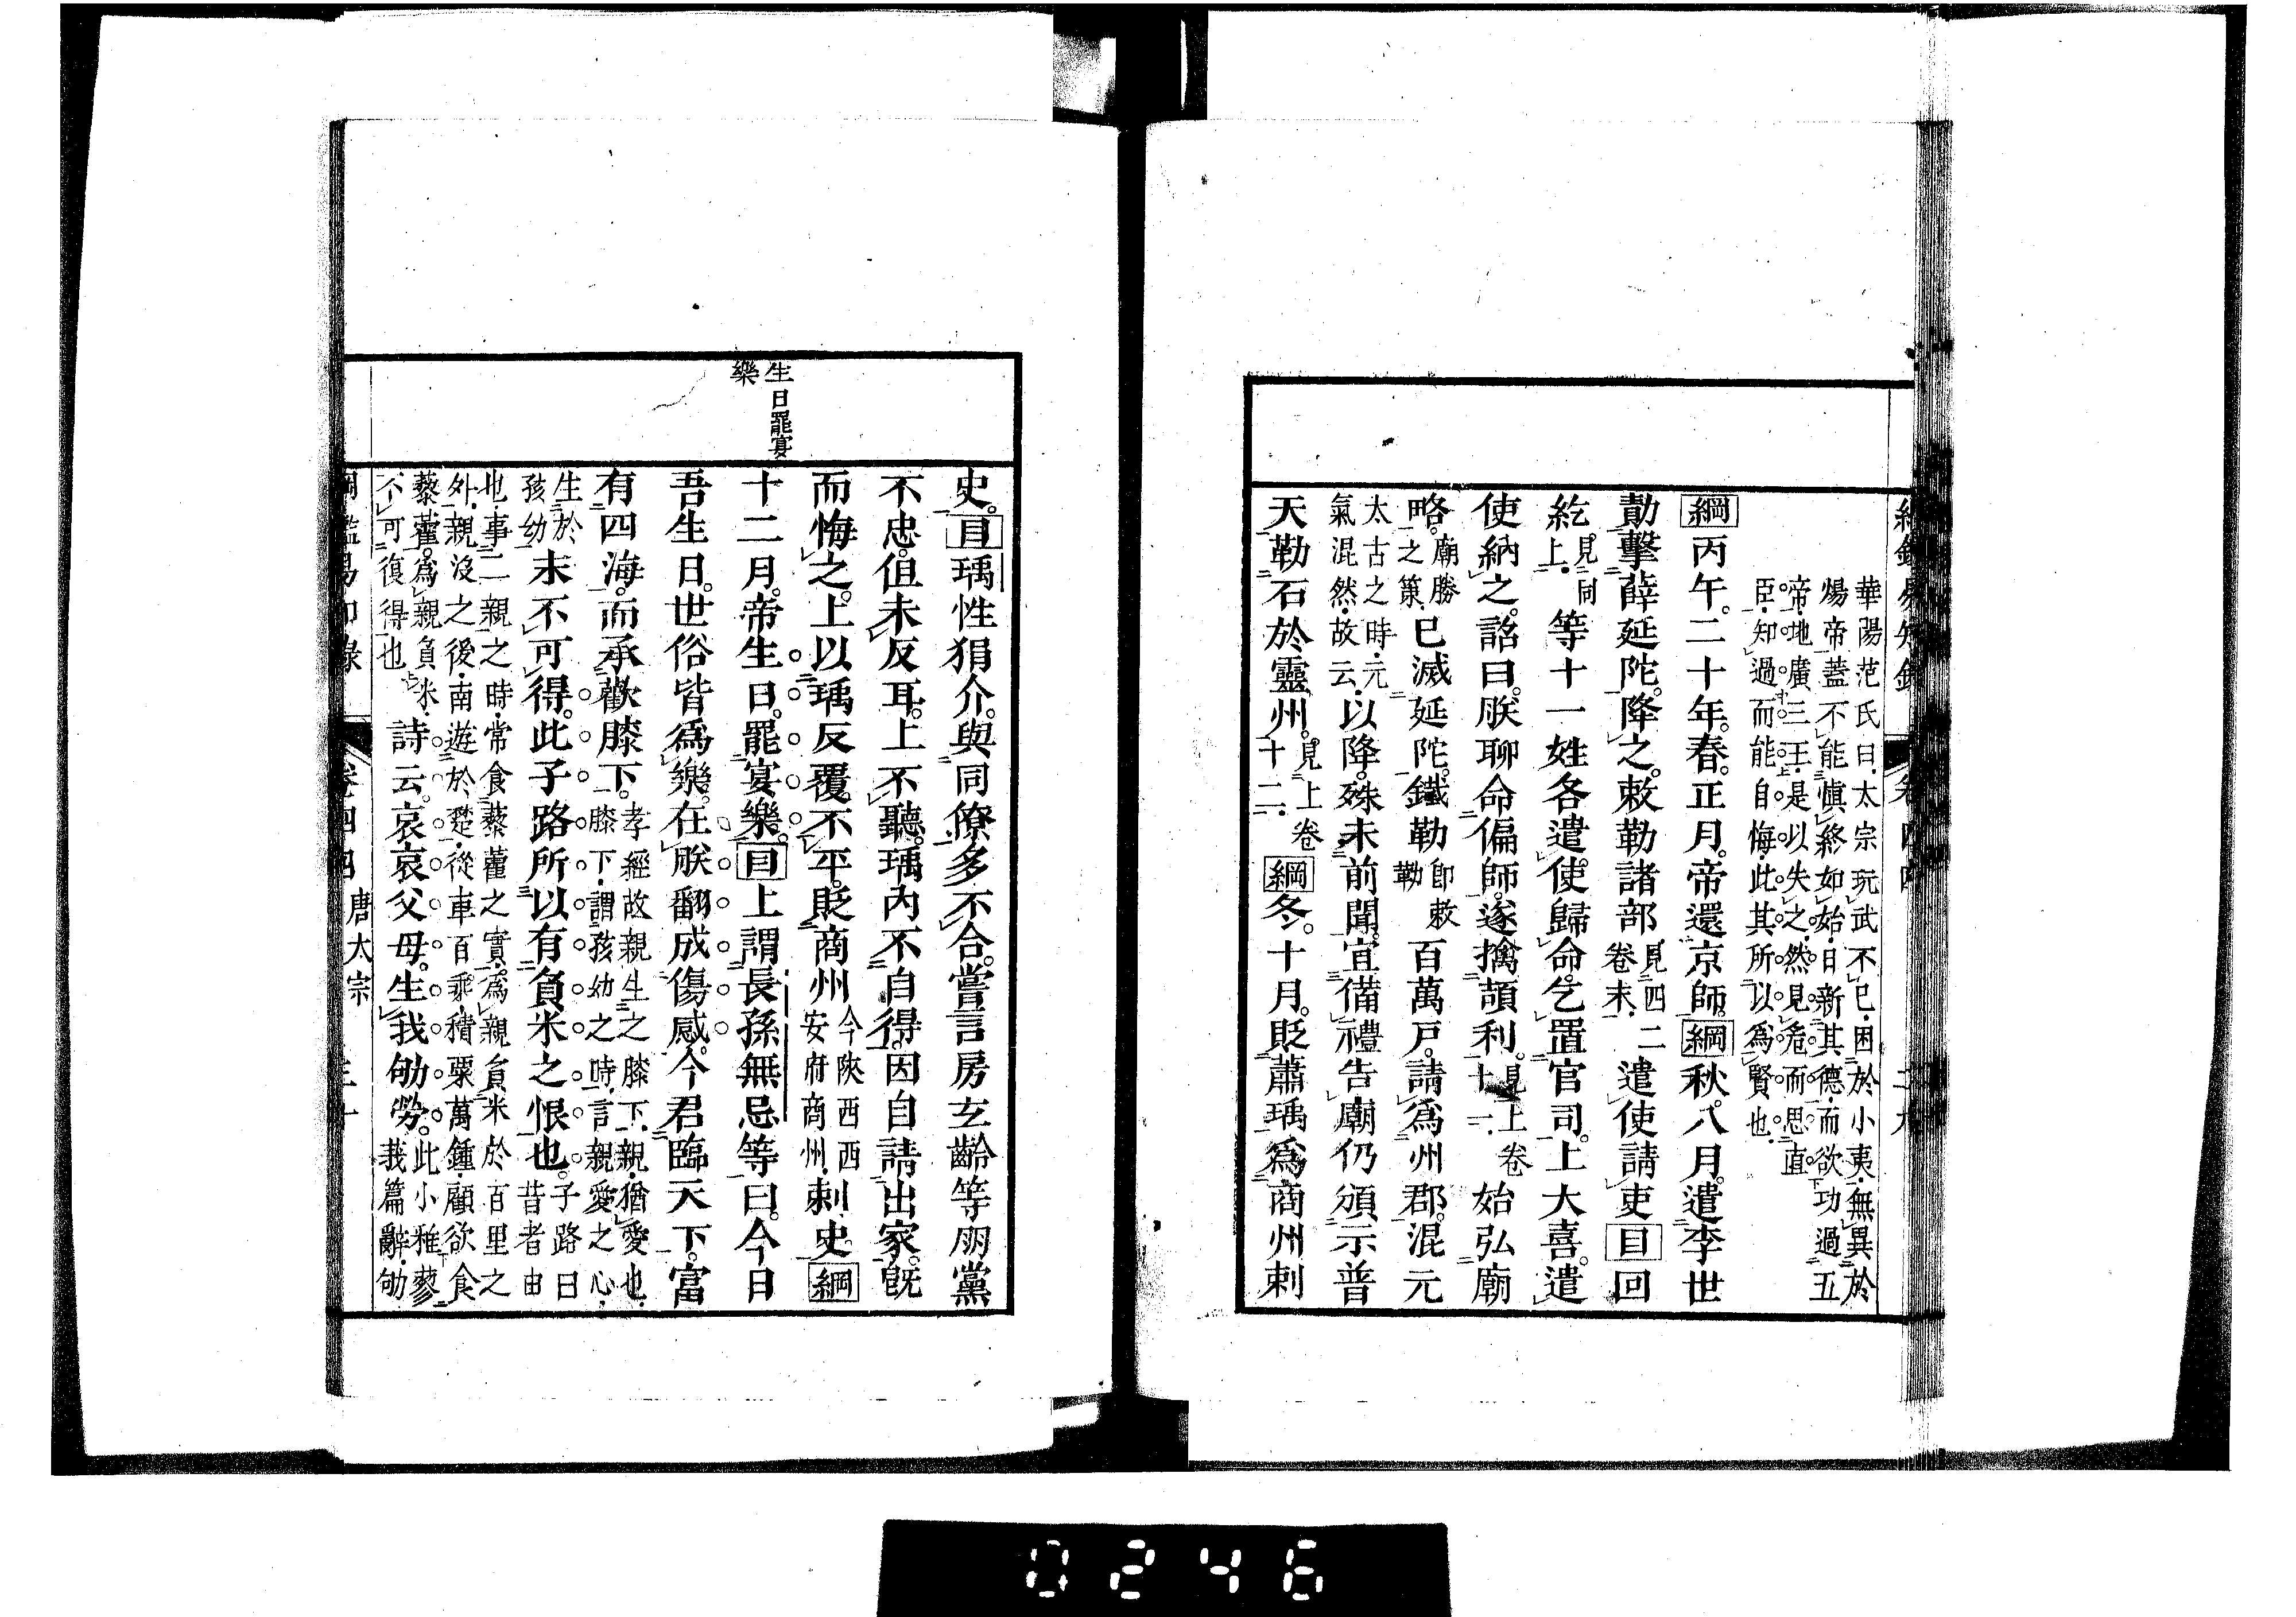 華陽范氏曰太宗玩武不已困於小夷無異於
煬帝蓋不能慎終如始日新其德而欲功過五
帝地廣三王是以失之然見危而思直
臣知過而能自悔此其所以為賢也
綱丙午。二十年。春。正月。帝還京師。綱秋。八月。遣李世
勣擊薛延陀。降之。敕勒諸部見四二卷末遣使請吏目回
紇見同上等十一姓各遣使歸命。乞置官司。上大喜。遣
使納之。詔曰。朕聊命偏師。遂擒頡利。見上卷十一始弘廟
略。廟勝之策已滅延陀。鐵勒即敕勒百萬戶。請為州郡。混元
太古之時元氣混然故云以降。殊未前聞。宜備禮告廟仍頒示普
天勒石於靈州。見上卷十二綱冬。十月。貶蕭瑀為商州刺
史。目瑀性狷介。與同僚多不合。嘗言房玄齡等朋黨
不忠。但未反耳。上不聽。瑀內不自得。因自請出家。既
而悔之。上以瑀反覆不平。貶商州今陝西西安府商州刺史。綱
十二月。帝生日。罷宴樂。目上謂長孫無忌等曰。今日
生日罷宴樂
吾生日。世俗皆為樂。在朕翻成傷感。今君臨天下。富
有四海。而承歡膝下。孝經故親生之膝下親猶愛也膝下謂孩幼之時言親愛之心
生於孩幼末不可得。此子路所以有負米之恨也。子路曰昔者由
也事二親之時常食藜藿之實為親負米於百里之
外親沒之後南遊於楚從車百乘積粟萬鍾願欲食
藜藿為親負米不可復得也詩云。哀哀父母。生我劬勞。此小雅蓼莪篇辭劬
綱鑑易知錄 卷四四 唐太宗 三十